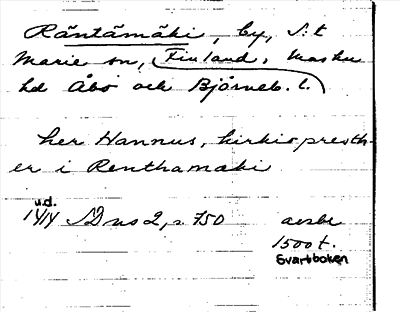 Räntämäki, by, S:t
Marie sn, Finland, Masku
hd Åbo och Björneb. l.
her Hannus, kirkioprest
er i Renthamaki
u.d.
14/14 SD ns 2, s. 750
avskr
1500 t.
Svartboken